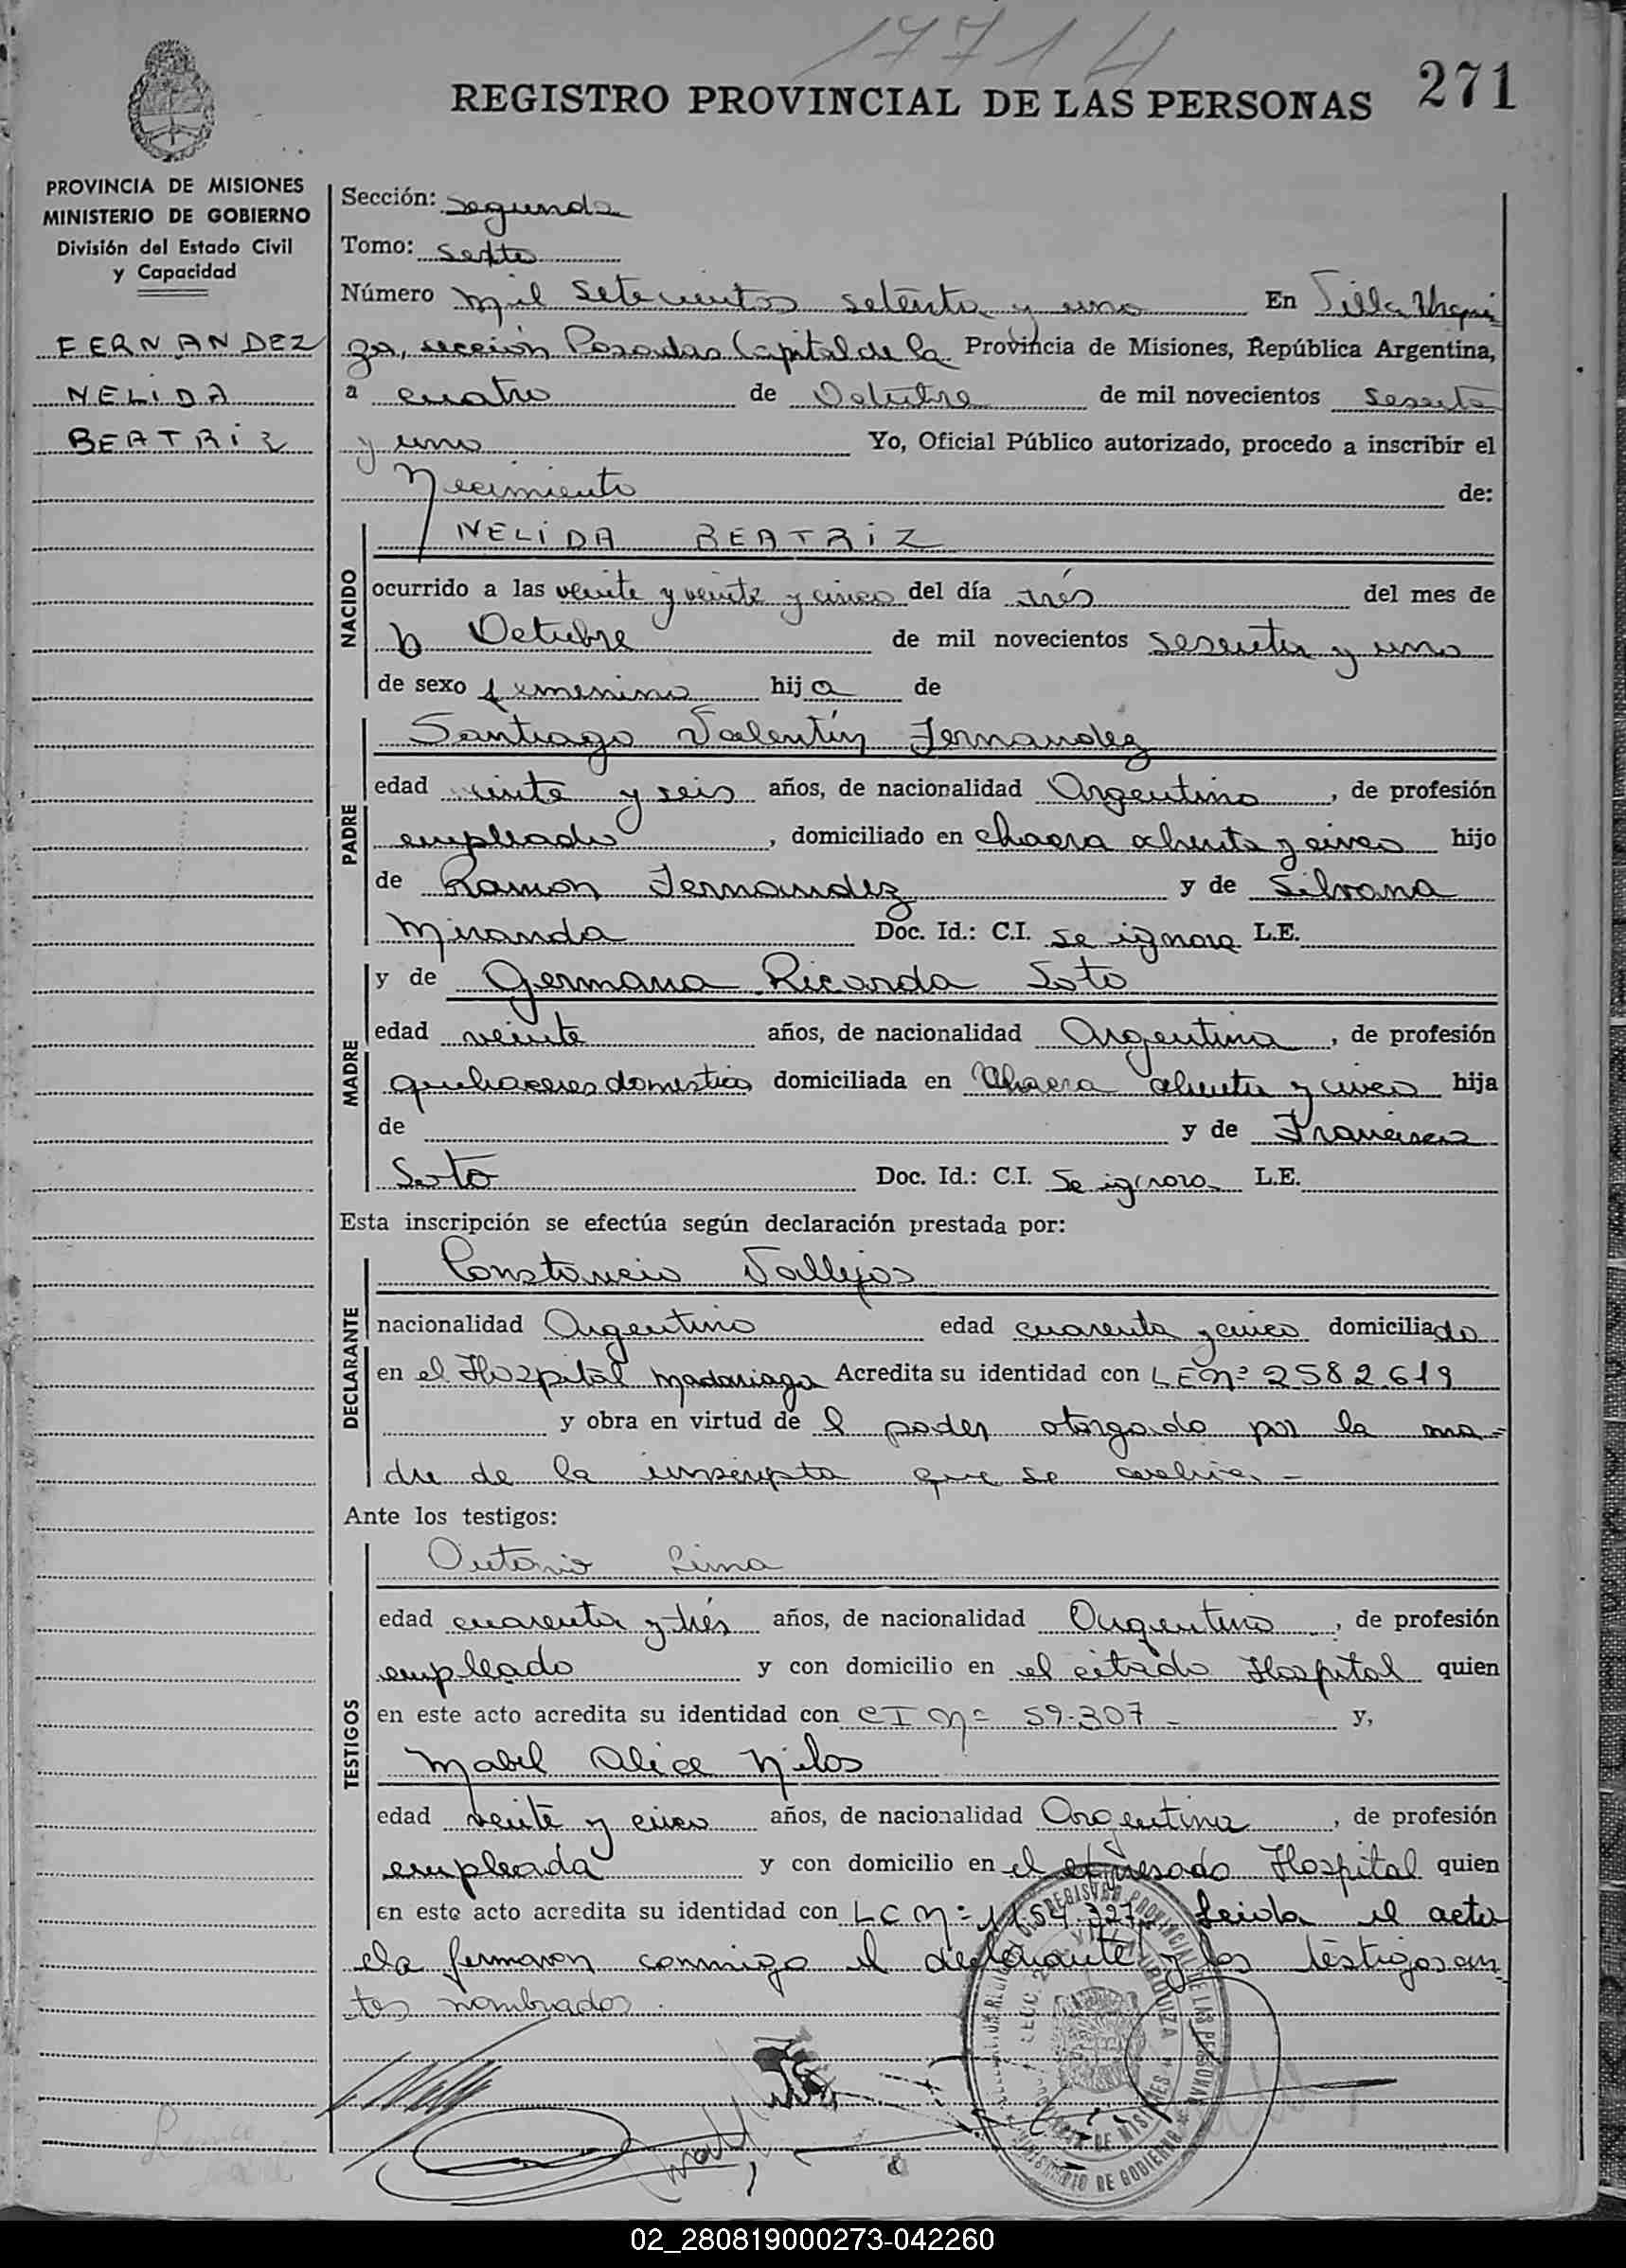 17714
REGISTRO PROVINCIAL DE LAS PERSONAS 271
PROVINCIA DE MISIONES
MINISTERIO DE GOBIERNO
División del Estado Civil
y Capacidad
FERNANDEZ
NELIDA
BEATRIZ
Sección: Segunda
Tomo: Sexto
Número Mil Setecientos setenta y uno En Villa Urqui
za, sección Posadas Capital de la Provincia de Misiones, República Argentina,
a cuatro de Octubre de mil novecientos sesenta
y uno Yo, Oficial Público autorizado, procedo a inscribir el
Nacimiento de:
NACIDO
NELIDA BEATRIZ
ocurrido a las veinte y veinte y cinco del día trés del mes de
Octubre de mil novecientos sesenta y uno
de sexo femenino hija de
PADRE
Santiago Valentín Fernandez
edad veinte y seis años, de nacionalidad Argentino, de profesión
empleado, domiciliado en chacra ochenta y cinco hijo
de Ramon Fernandez y de Silvana
Miranda Doc. Id.: C.I. se ignora L.E.
MADRE
y de Germana Ricarda Soto
edad veinte años, de nacionalidad Argentina, de profesión
quehaceres domestico domiciliada en Chacra ochenta y cinco hija
de y de Francisca
Soto Doc. Id.: C.I. Se ignora L.E.
Esta inscripción se efectúa según declaración prestada por:
DECLARANTE
Constancio Vallejos
nacionalidad Argentino edad cuarenta y cinco domiciliado
en el Hospital Madariaga Acredita su identidad con L E Nº 2582.619
y obra en virtud de l poder otorgado por la ma=
dre de la inscripta que se archiva -
Ante los testigos:
TESTIGOS
Antonio Lima
edad cuarenta y trés años, de nacionalidad Argentino, de profesión
empleado y con domicilio en el citado Hospital quien
en este acto acredita su identidad con C I Nº 59.307 - y,
Mabel Alice
edad veinte y cinco años, de nacionalidad Argentina, de profesión
empleada y con domicilio en el expresado Hospital quien
en este acto acredita su identidad con L C Nº Leida el acta
la firmaron conmigo el declarante y los testigos an
tes nombrados.
REGISTRO PROVINCIAL DE LAS PERSONAS
VILLA URQUIZA
PROVINCIA DE MISIONES
MINISTERIO DE GOBIERNO
02_280819000273-042260